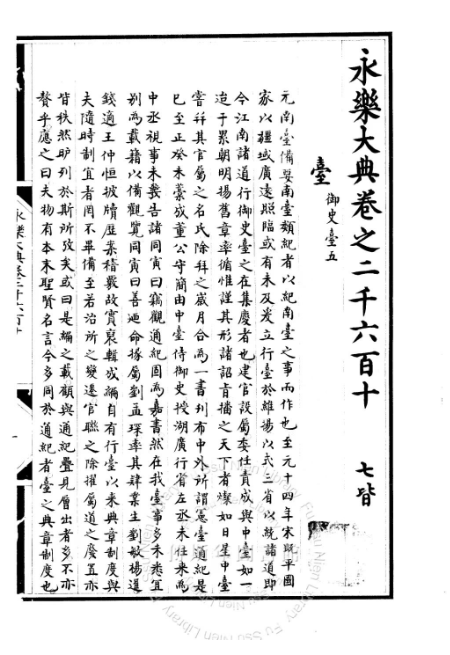 永樂大典卷之二千六百十
七皆
臺
御史臺五
元南臺備要南臺類紀者以紀南臺之事而作也至元十四年宋既平國
家以疆域廣遠照臨或有未及爰立行臺於維揚以式三省以統諸道即
今江南諸道行御史臺之在集慶者也建官設屬委任責成與中臺如一
迨于累朝明揚舊章率循惟謹其形諸詔旨播之天下者燦如日星中臺
嘗幷其官屬之名氏除拜之歲月合爲一書刊布中外所謂憲臺通紀是
已至正癸未藁城董公守簡由中臺侍御史授湖廣行省左丞未任來爲
中丞視事未幾告諸同寅曰竊觀通紀固爲嘉書然在我臺事多未悉宜
别爲載籍以備觀覽同寅曰善迺命掾屬劉孟琛率其肄業主劉敏楊道
錢適王仲恒披牘歷案稽嚴故實裒輯成編自有行臺以來典章制度與
夫隨時制宜者罔不畢備至若治所之變遷官聯之除擢屬道之廢置亦
皆秩然昈列於斯所攷矣或曰是編之載顧與通紀疊見層出者多不亦
贅乎應之曰夫物有本末聖賢名言今多同於通紀者臺之典章制度也
永樂大典卷二千六百十
一
Fu Ssu Nien Library